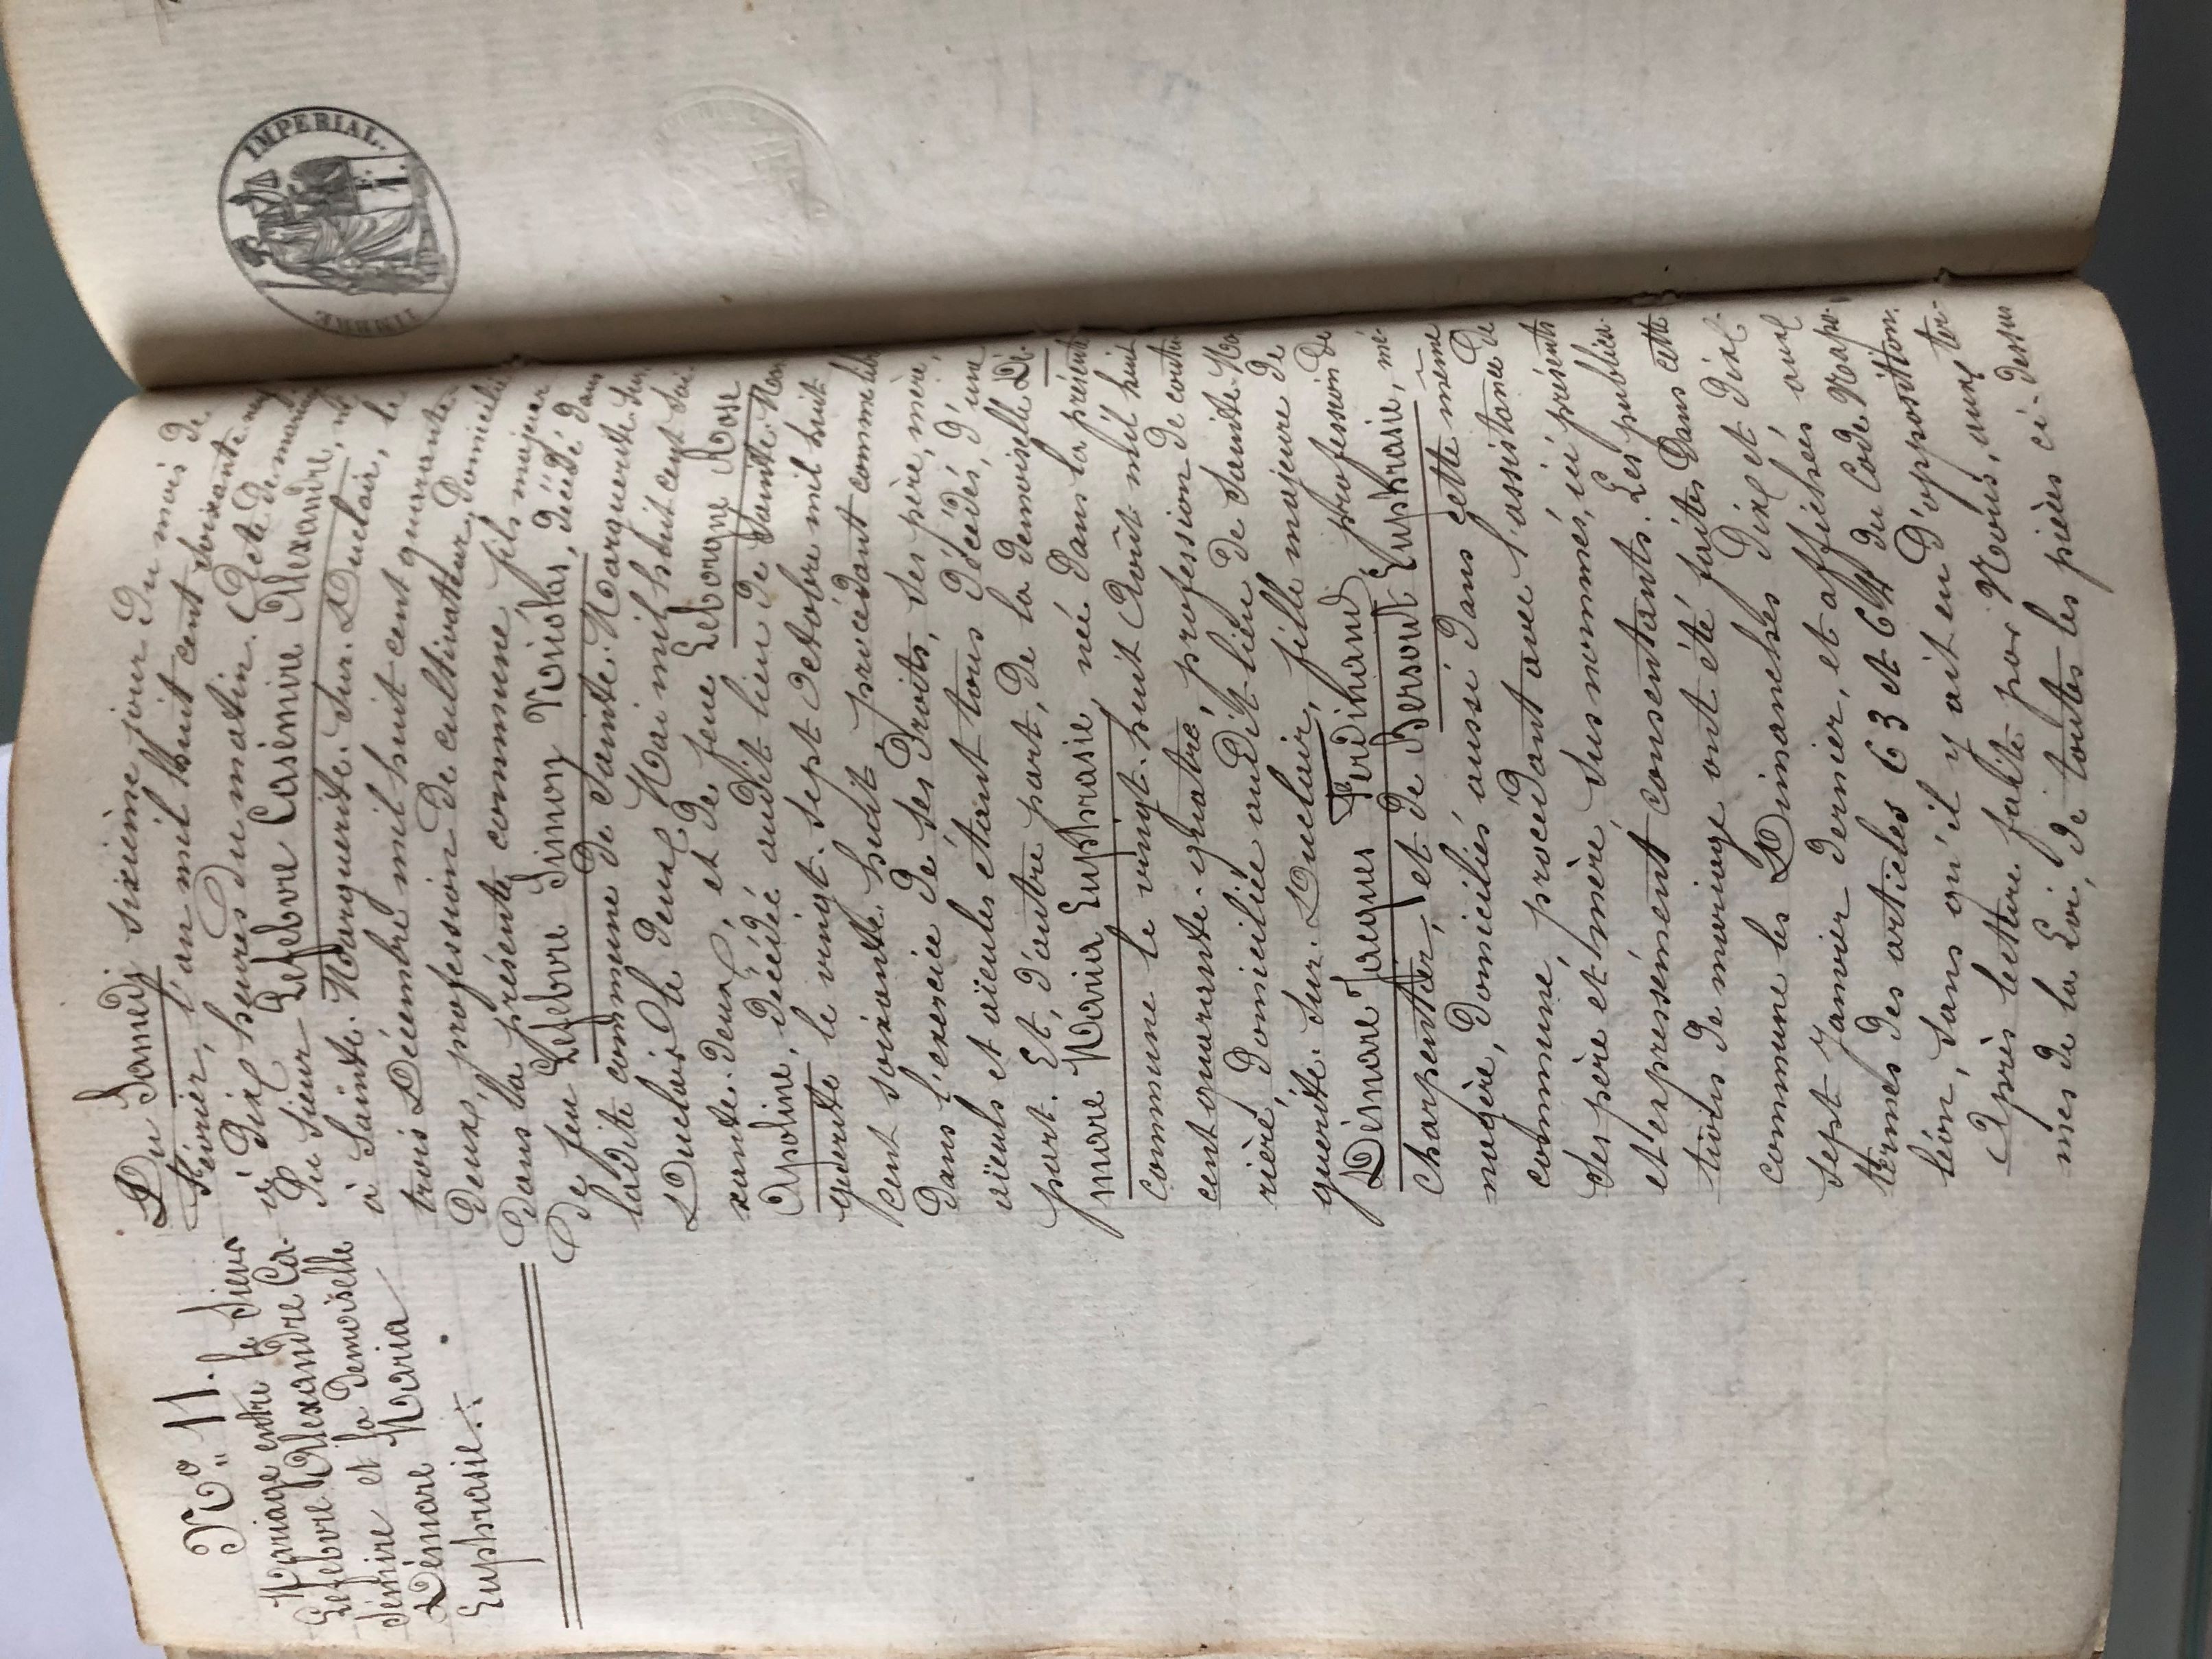 N°. 11.
Mariage entre le sieur
Lefebvre Alexandre Ca-
simire et la Demoiselle
Démare Maria
Euphrasie.
Du Samedi sixième jour du mois de
Février, l'an mil huit cent soixante neuf
à Dix heures du matin. Acte de mariage
Du sieur Lefebvre Casimire Alexandre, né
à Sainte. Marguerite. Sur. Duclair, le
trois Décembre mil huit cent quarante.
Deux, profession de cultivateur, Domicilié
Dans la présente commune, fils majeur
De feu Lefebvre Simon Nicolas, décédé dans
ladite commune de Sainte. Marguerite. Sur.
Duclair, le Deux Mai mil huit cent soi-
xante. Deux, et de feue Leborgne Rose
Apoline, décédée audit lieu de Sainte. Mar
guerite le vingt. sept Octobre mil huit
cent soixante. huit, procédant comme libre
Dans l'exercice de ses Droits, ses père, mère,
aïeuls et aïeules étant tous Décédés, d'une
part. Et, d'autre part, De la demoiselle Dé-
mare Maria Euphrasie, née Dans la présente
commune le vingt. huit Août mil huit
cent quarante. quatre, profession de coutu
rière, Domiciliée audit lieu De Sainte. Mar
guerite. Sur. Duclair, fille majeure de
Démare Jacques Ferdinand, profession de
charpentier, et de Bersout Euphrasie, mé-
nagère, Domiciliés aussi Dans cette même
commune, procédant avec l'assistance de
ses père et mère sus nommés, ici présents
et expressément consentants. Les publica-
tions de mariage ont été faites Dans cette
commune les Dimanches Dix et Dix-
sept Janvier dernier, et affichées aux
termes des articles 63 et 64 du Code Napo-
léon, sans qu'il y ait eu D'opposition.
Après lecture faite par Nous, aux ter-
mes de la Loi, de toutes les pièces ci-dessus
TIMBRE IMPERIAL.